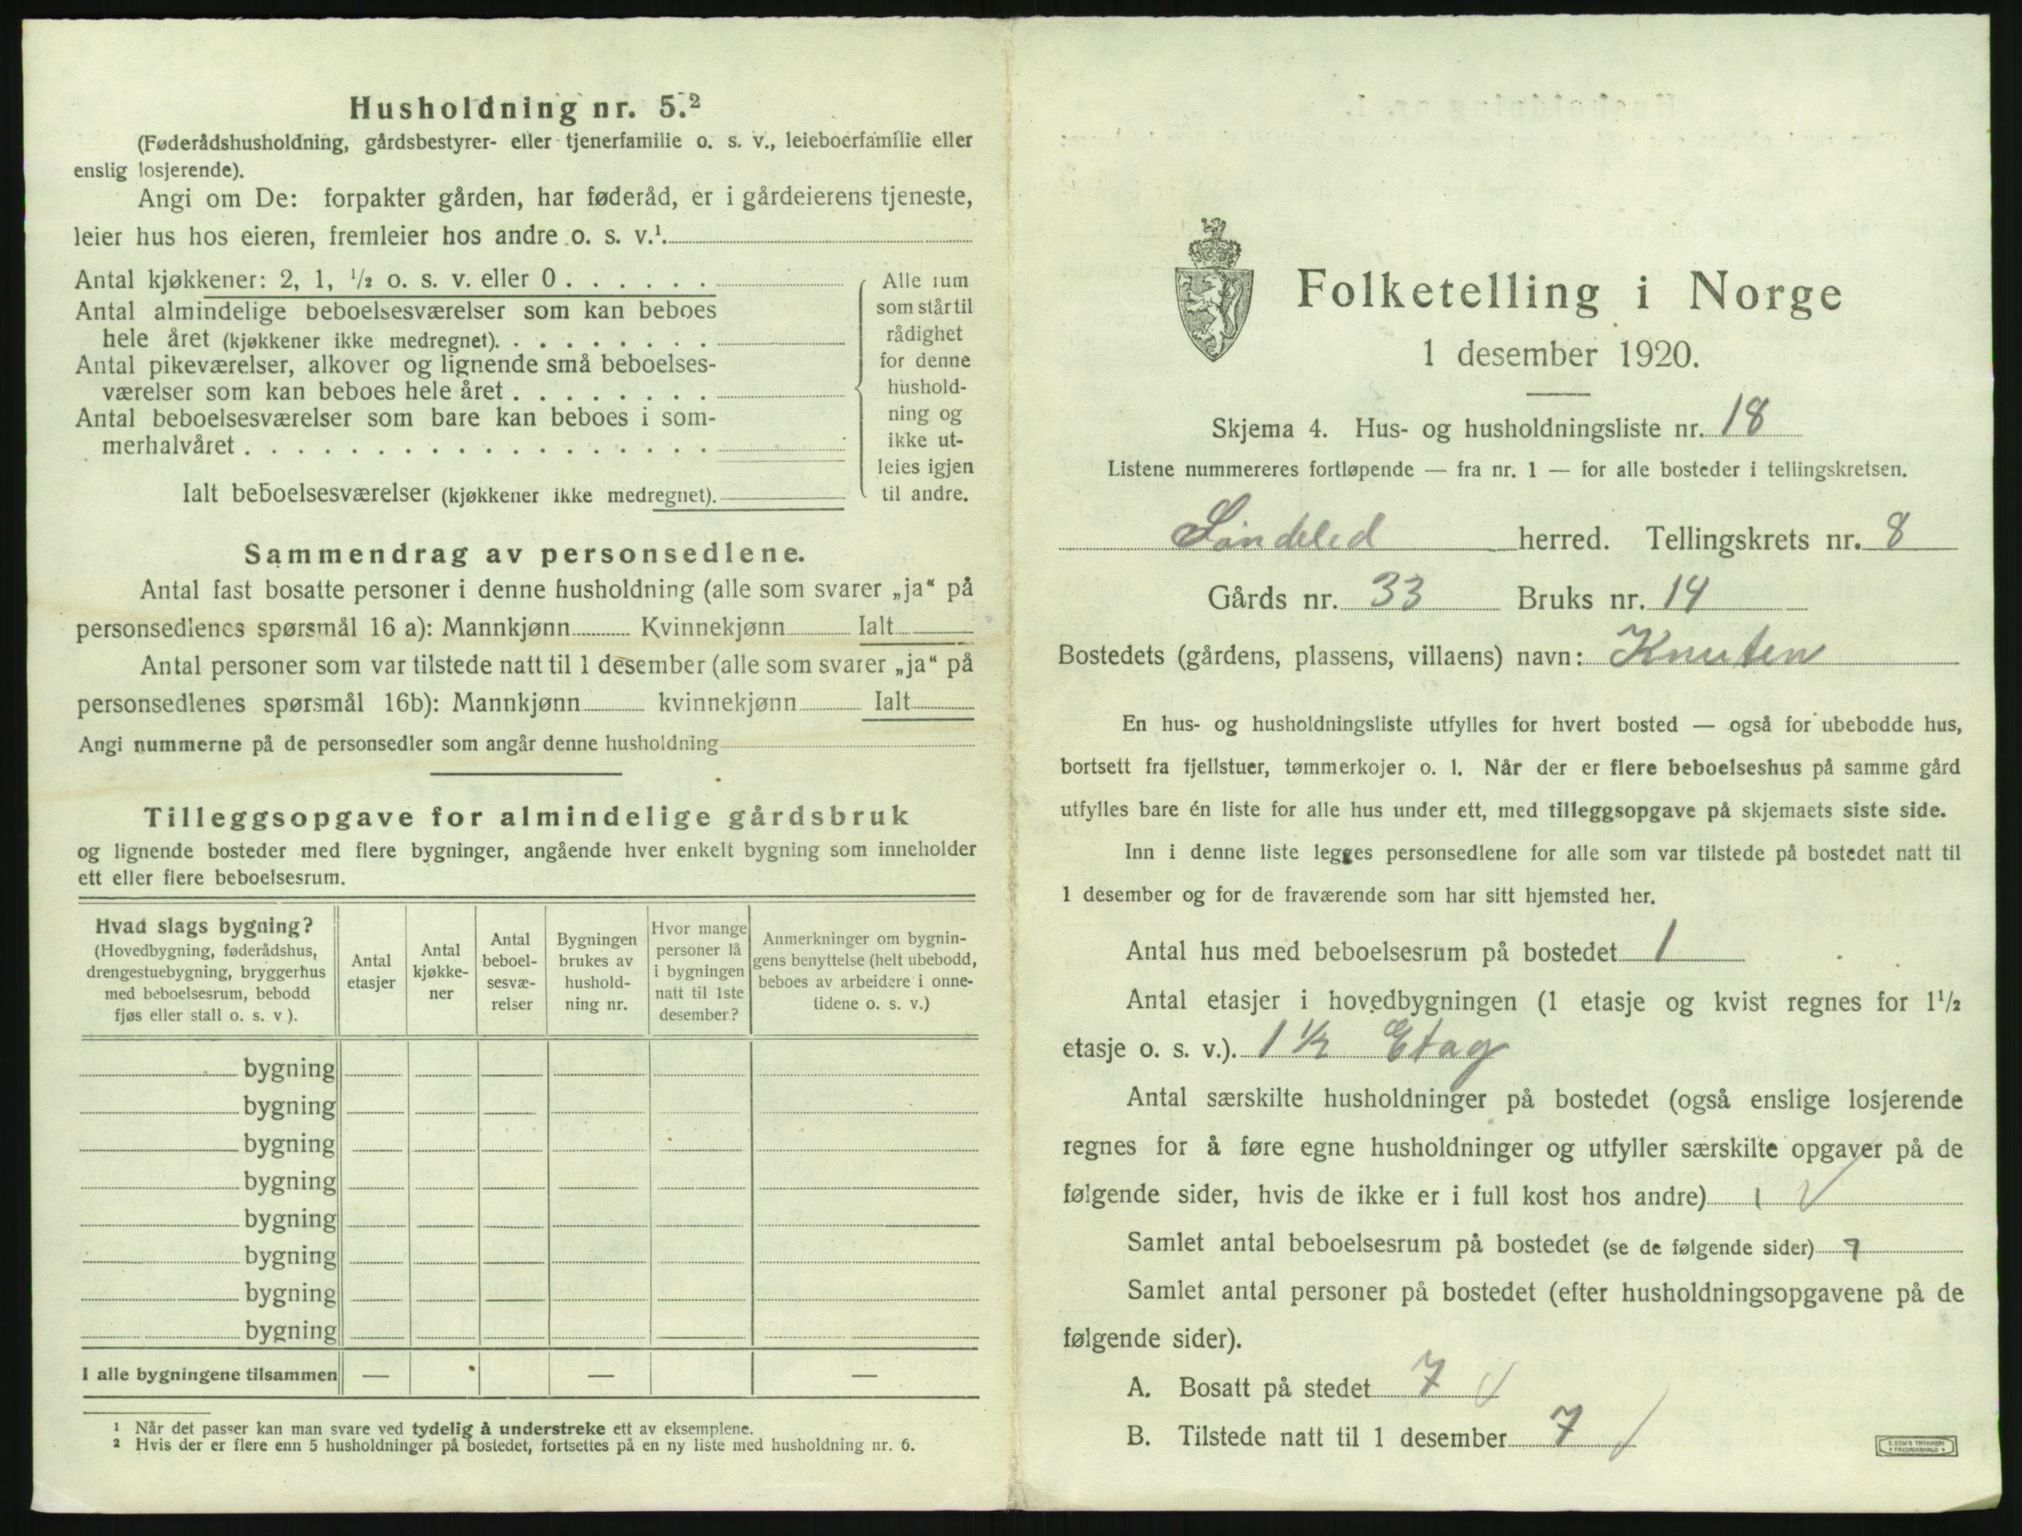 Husholdning nr. 5.²
(Føderådshusholdning, gårdsbestyrer- eller tjenerfamilie o. s. v., leieboerfamilie eller
enslig losjerende).
Angi om De: forpakter gården, har føderåd, er i gårdeierens tjeneste,
leier hus hos eieren, fremleier hos andre o. s. v.¹
Antal kjøkkener: 2, 1, ½ o. s. v. eller 0
Antal almindelige beboelsesværelser som kan beboes
hele året (kjøkkener ikke medregnet)
Antal pikeværelser, alkover og lignende små beboelses-
værelser som kan beboes hele året
Antal beboelsesværelser som bare kan beboes i som-
merhalvåret
Ialt beboelsesværelser (kjøkkener ikke medregnet).
Alle rum
som står til
rådighet
for denne
hushold-
ning og
ikke ut-
leies igjen
til andre.
Sammendrag av personsedlene.
Antal fast bosatte personer i denne husholdning (alle som svarer „ja“ på
personsedlenes spørsmål 16 a): Mannkjønn Kvinnekjønn Ialt
Antal personer som var tilstede natt til 1 desember (alle som svarer „ja“ på
personsedlenes spørsmål 16b): Mannkjønn kvinnekjønn Ialt
Angi nummerne på de personsedler som angår denne husholdning
Tilleggsopgave for almindelige gårdsbruk
og lignende bosteder med flere bygninger, angående hver enkelt bygning som inneholder
ett eller flere beboelsesrum.
Hvad slags bygning?
(Hovedbygning, føderådshus,
drengestuebygning, bryggerhus
med beboelsesrum, bebodd
fjøs eller stall o. s. v ).
Antal
etasjer
Antal
kjøkke-
ner
Antal
beboel-
sesvæ-
relser
Bygningen
brukes av
hushold-
ning nr.
Hvor mange
personer lå
i bygningen
natt til 1ste
desember?
Anmerkninger om bygnin-
gens benyttelse (helt ubebodd,
beboes av arbeidere i onne-
tidene o. s. v.)
bygning
bygning
bygning
bygning
bygning
bygning
bygning
bygning
I alle bygningene tilsammen — — —
¹ Når det passer kan man svare ved tydelig å understreke ett av eksemplene.
² Hvis der er flere enn 5 husholdninger på bostedet, fortsettes på en ny liste med husholdning nr. 6.
Folketelling i Norge
1 desember 1920.
Skjema 4. Hus- og husholdningsliste nr. 18
Listene nummereres fortløpende — fra nr. 1 — for alle bosteder i tellingskretsen.
Søndeled herred. Tellingskrets nr. 8
Gårds nr. 33 Bruks nr. 14
Bostedets (gårdens, plassens, villaens) navn: Knuten
En hus- og husholdningsliste utfylles for hvert bosted — også for ubebodde hus,
bortsett fra fjellstuer, tømmerkojer o. l. Når der er flere beboelseshus på samme gård
utfylles bare én liste for alle hus under ett, med tilleggsopgave på skjemaets siste side.
Inn i denne liste legges personsedlene for alle som var tilstede på bostedet natt til
1 desember og for de fraværende som har sitt hjemsted her.
Antal hus med beboelsesrum på bostedet 1
Antal etasjer i hovedbygningen (1 etasje og kvist regnes for 1½
etasje o. s. v.). 1 ½ Etag
Antal særskilte husholdninger på bostedet (også enslige losjerende
regnes for å føre egne husholdninger og utfyller særskilte opgaver på de
følgende sider, hvis de ikke er i full kost hos andre) 1 √
Samlet antal beboelsesrum på bostedet (se de følgende sider)
Samlet antal personer på bostedet (efter husholdningsopgavene på de
følgende sider).
A. Bosatt på stedet 7 √
B. Tilstede natt til 1 desember 7 /